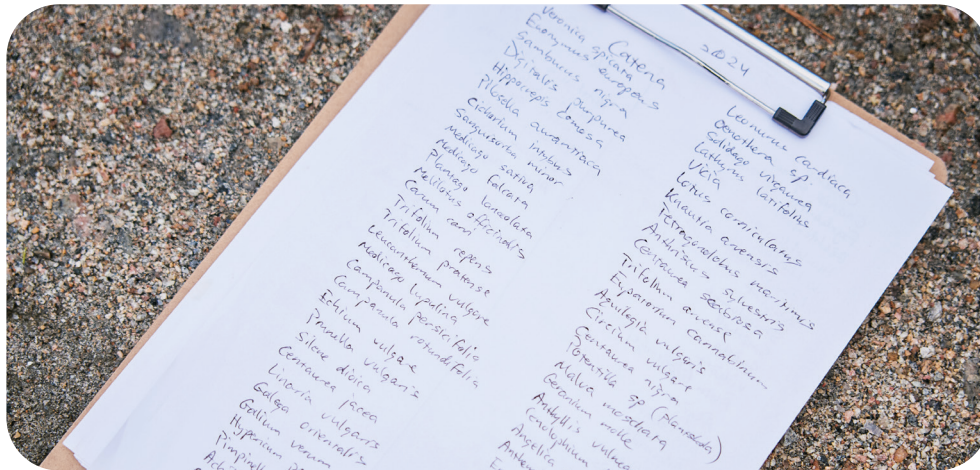 Catena
2024
Veronica spicata
Euonymus europeus
Sambucus nigra
Digitales purpurea
Hippocrepis comosa
Pilosella aurantiaca
Cichorium intybus
Sanguisorba minor
Medicago sativa
Medicago falcata
Plantago lanceolata
Melilotus officinalis
Carum carvi
Trifolium repens
Trifolium pratense
Leucanthemum vulgare
Medicago lupulina
Campanula persicifolia
Campanula rotundifolia
Echium vulgare
Prunella vulgaris
Silene dioica
Centaurea jacea
Linaria vulgaris
Galega orientalis
Galium verum
Hypericum
Leonurus cardiaca
Oenothera sp.
Solidago virgaurea
Lathyrus latifolius
Vicia
Lotus corniculatus
Knautia arvensis
Tetragonolobus maritimus
Anthriscus sylvestris
Centaurea scabiosa
Trifolium arvense
Eupatorium cannabinum
Aquilegia vulgaris
Circium vulgare
Centaurea nigra
Potentilla sp
Malva moschata
Geranium molle
Anthyllis vulnea
Angelica